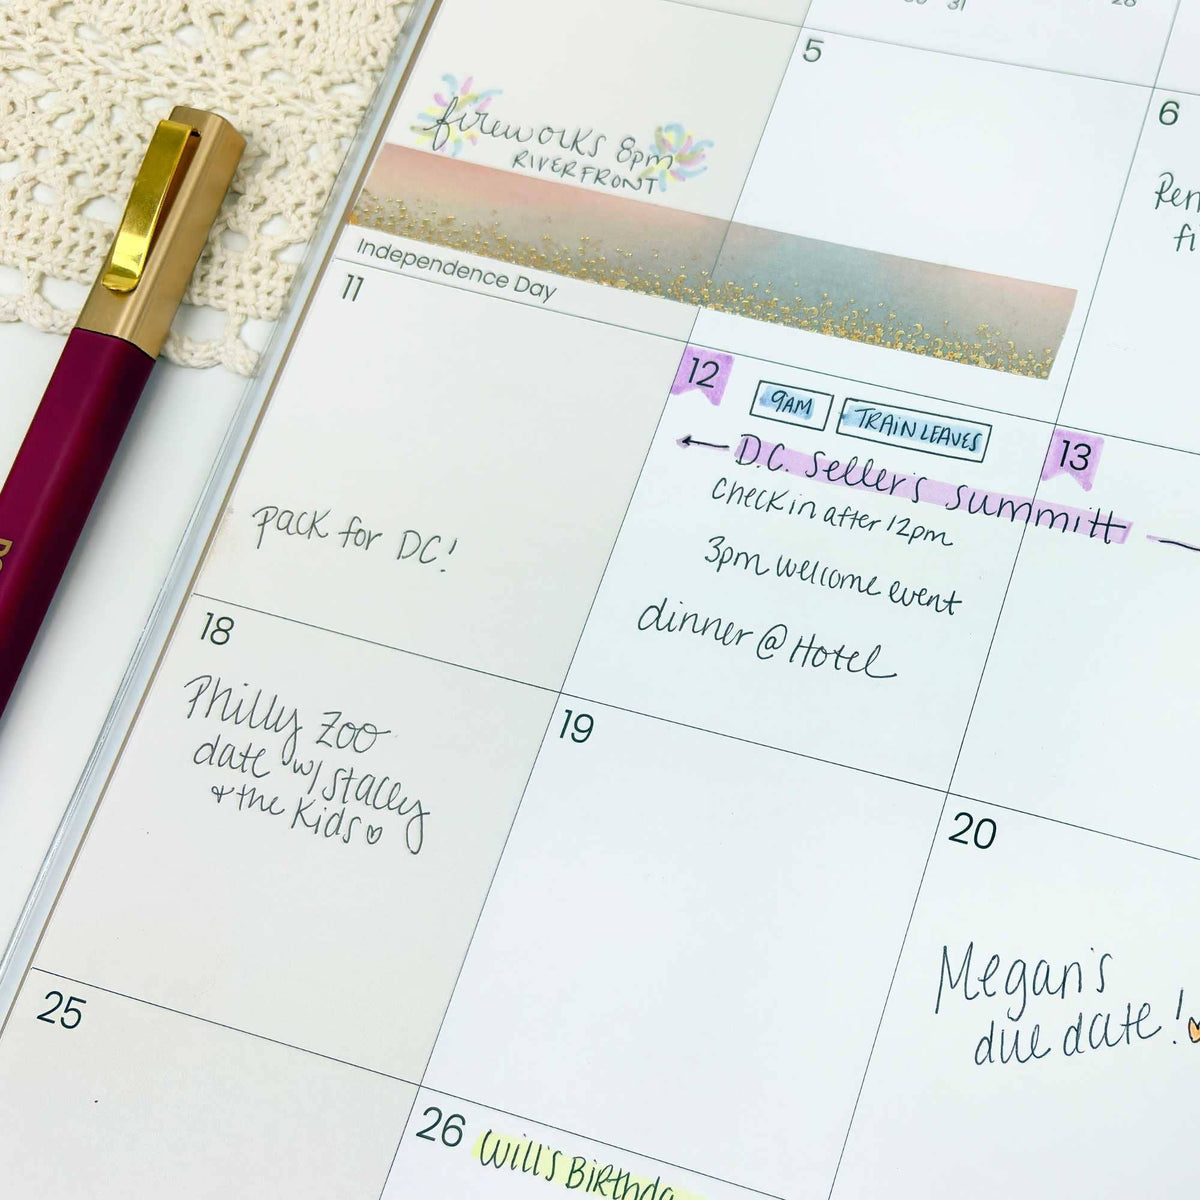 31
28
5
fireworks 8pm
RIVERFRONT
Independence Day
6
11
pack for DC!
12
9AM
TRAIN LEAVES
D.C. Seller's Summitt
check in after 12pm
3pm welcome event
dinner @ Hotel
13
18
Philly Zoo
date w/ Stacey
& the kids
19
20
Megan's
due date!
25
26
Will's Birthda